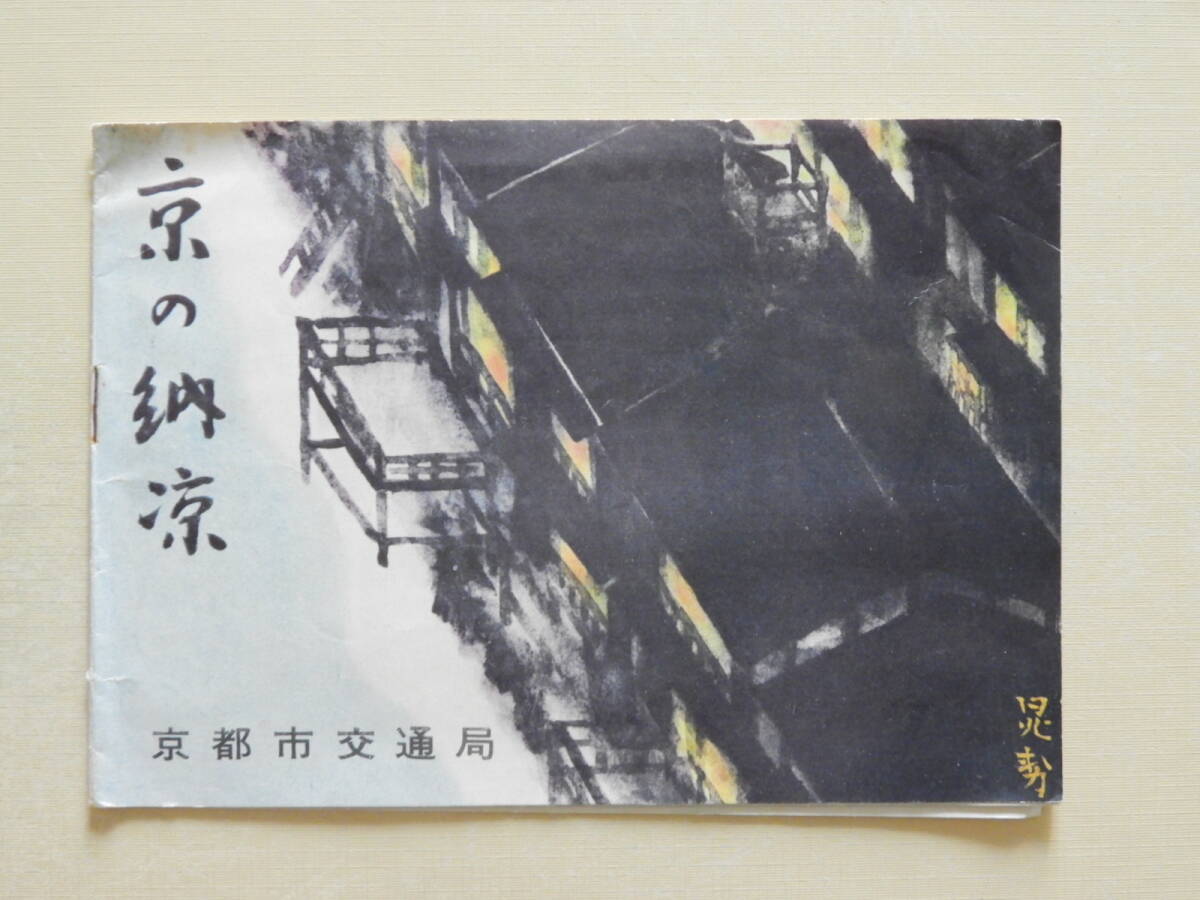 京の納凉
京都市交通局
晃勢